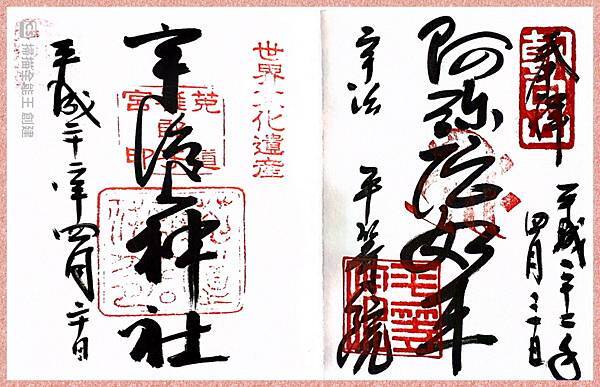 奉拝
平成二十二年
四月二十日
阿弥陀如来
宇治
平等院
世界文化遺産
宇治上神社
平成二十二年四月二十日
掃描全能王 創建